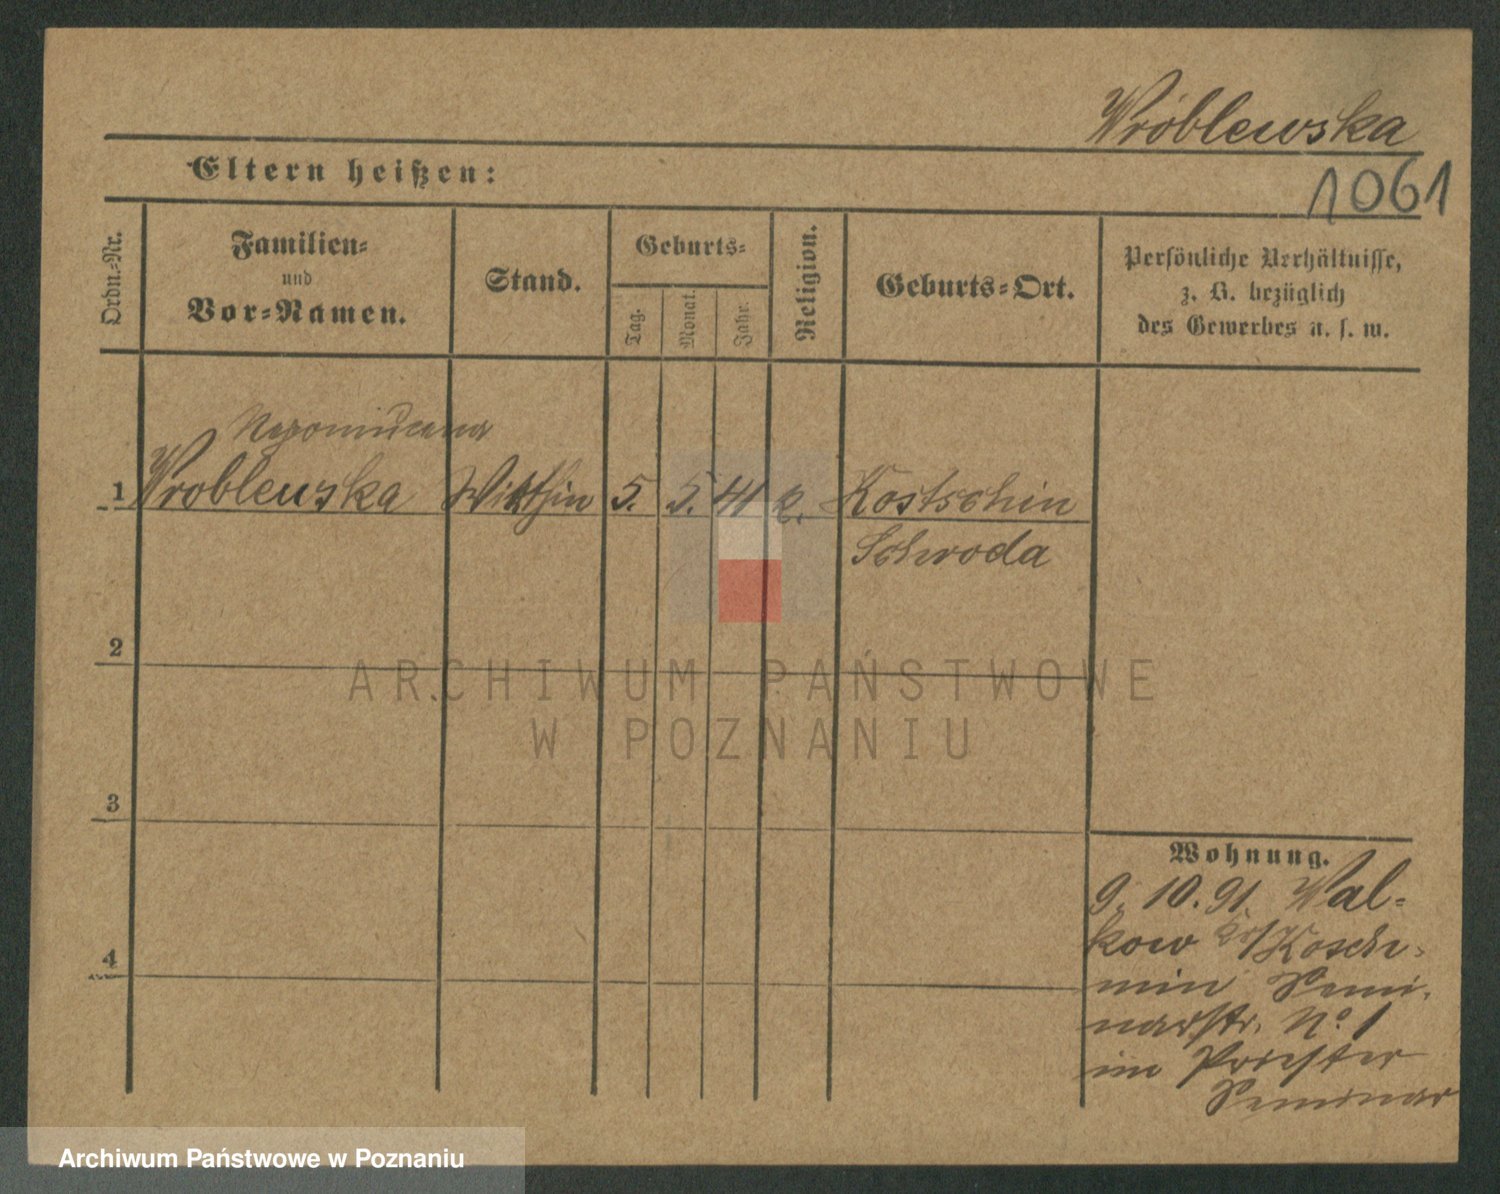 Wróblewska
1061
Eltern heißen:
Ordn.-Nr.
Familien-
und
Vor-Namen.
Stand.
Geburts-
Tag.
Monat.
Jahr.
Religion.
Geburts-Ort.
Persönliche Verhältnisse,
z. B. bezüglich
des Gewerbes u. s. w.
Nepomucena
1 Wroblewska Witthin 5. 5. 41 k. Kostschin
Schroda
2
ARCHIWUM PAŃSTWOWE
W POZNANIU
3
Wohnung.
9. 10. 91. Wal-
kow Krs/Kosch-
4
min Semi-
narstr. No. 1
im Priester
Seminar
Archiwum Państwowe w Poznaniu